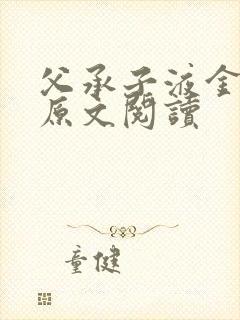 父承子液全
原文閱讀
童健